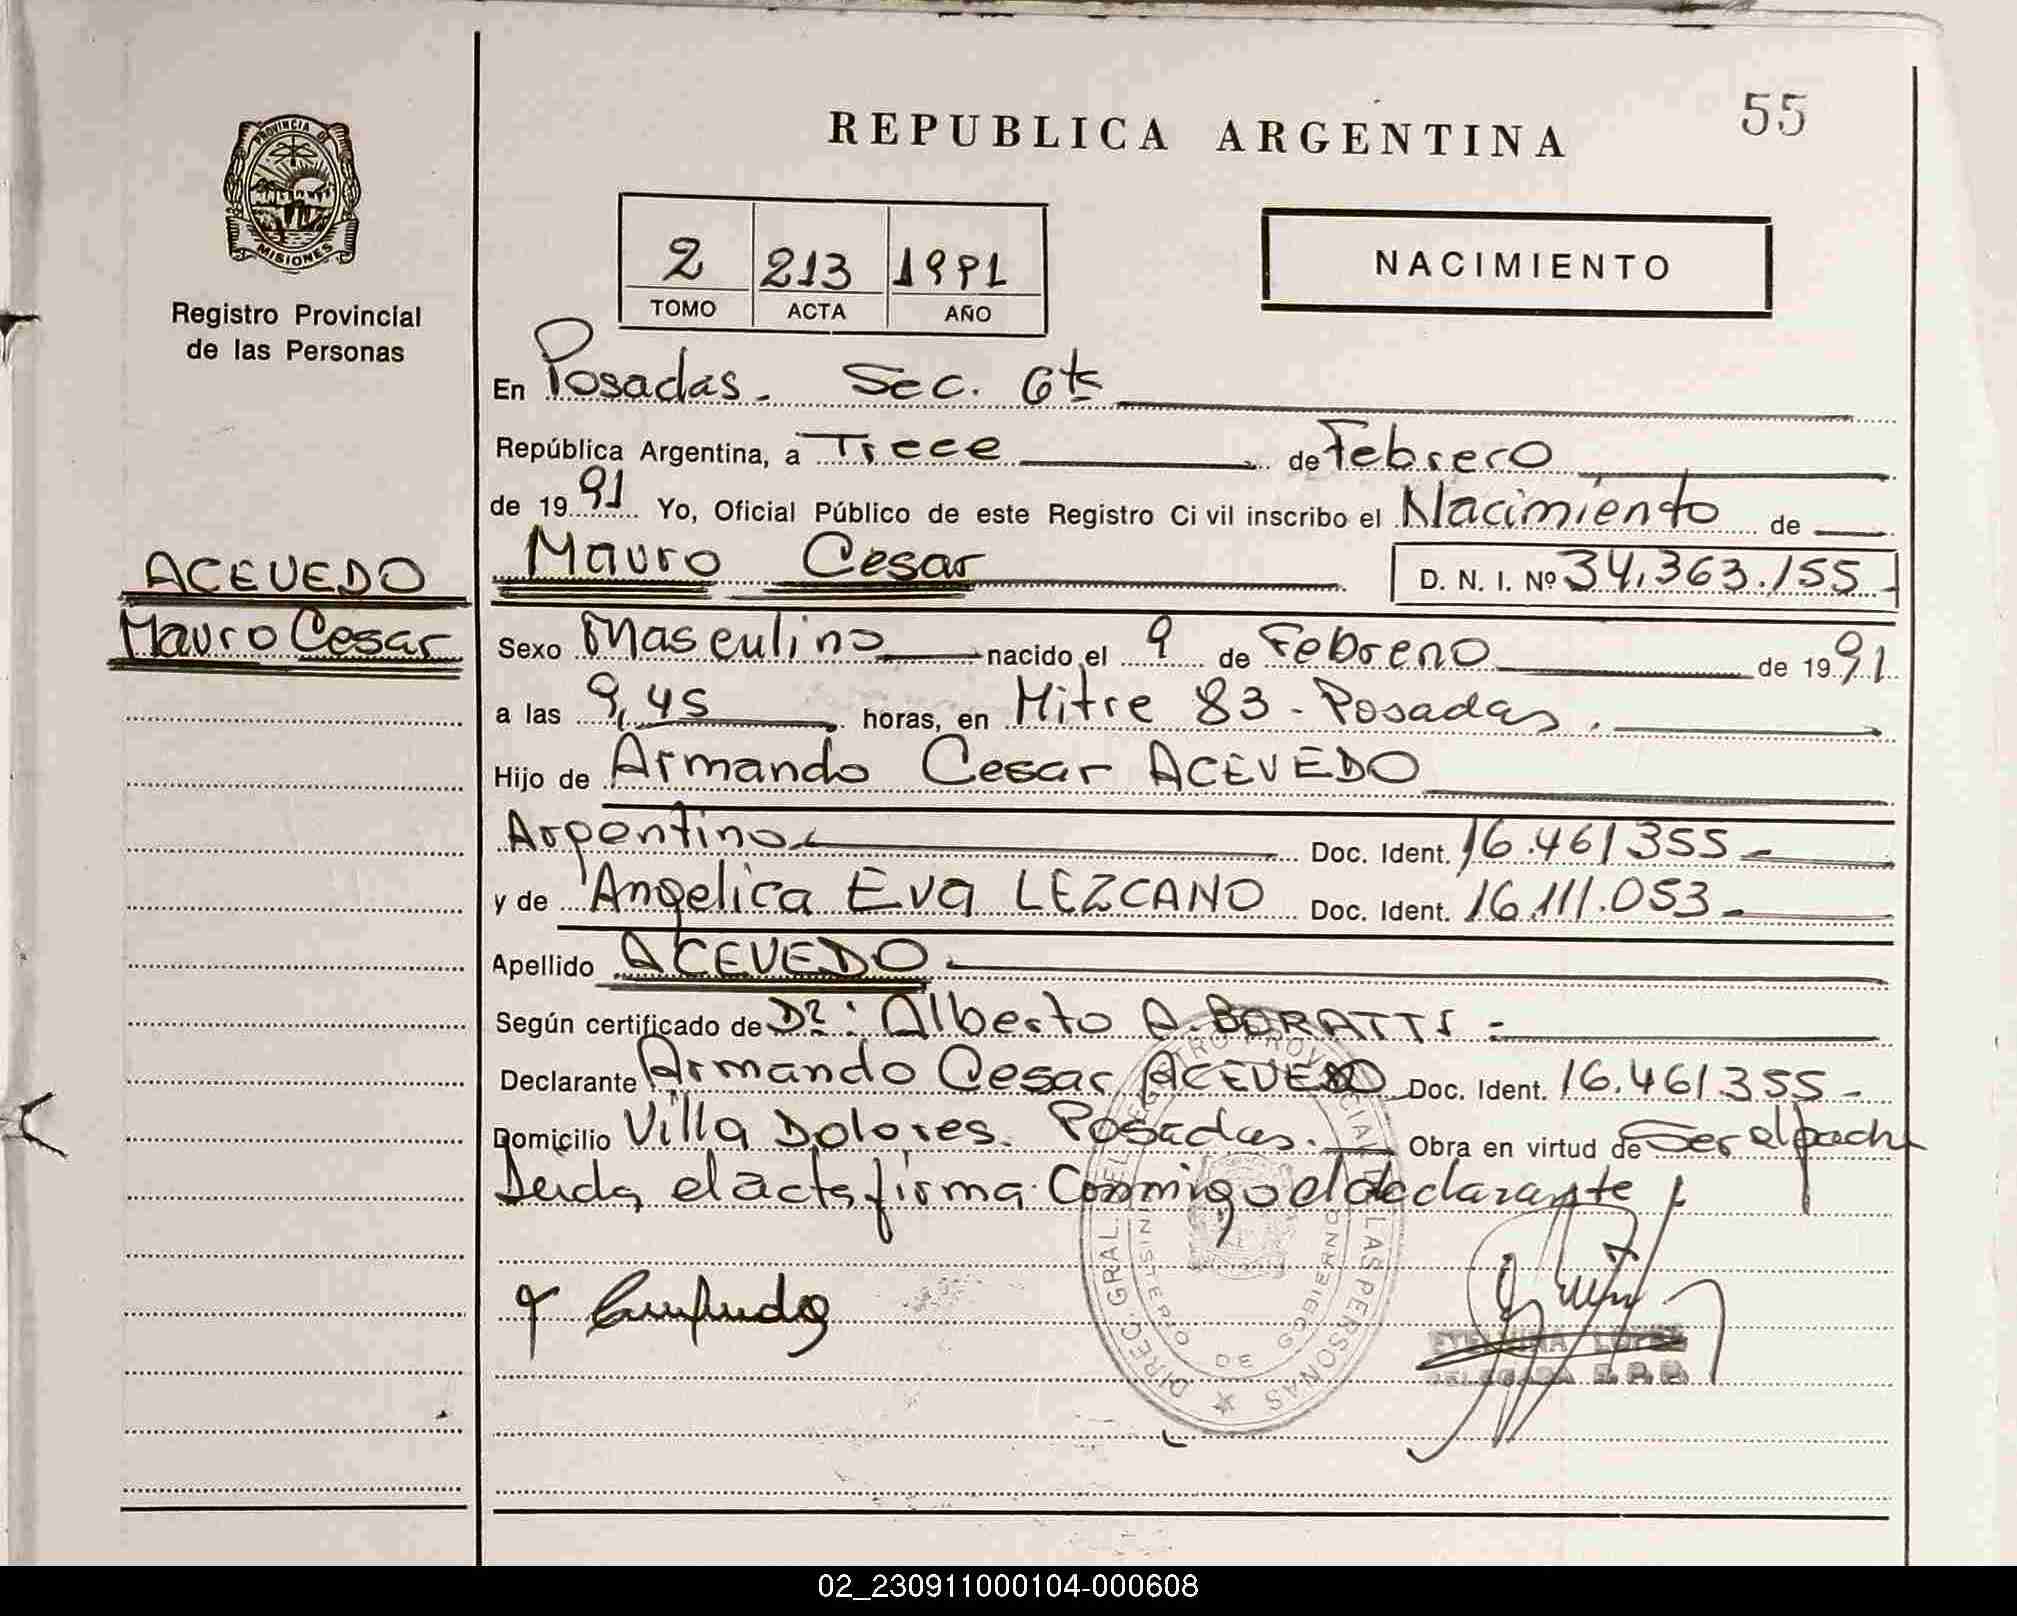 REPUBLICA ARGENTINA
55
PROVINCIA DE
MISIONES
Registro Provincial
de las Personas
2 213 1991
TOMO ACTA AÑO
NACIMIENTO
En Posadas. Sec. 6ta
República Argentina, a Trece de Febrero
de 1991 Yo, Oficial Público de este Registro Civil inscribo el Nacimiento de
Mauro Cesar D. N. I. Nº 34.363.155
ACEVEDO
Mauro Cesar
Sexo Masculino nacido el 9 de Febrero de 1991
a las 9,45 horas, en Mitre 83 - Posadas.
Hijo de Armando Cesar ACEVEDO
Argentino Doc. Ident. 16.461355
y de Angelica Eva LEZCANO Doc. Ident. 16.111.053
Apellido ACEVEDO
Según certificado de Dr: Alberto A. BORATTI
Declarante Armando Cesar ACEVEDO Doc. Ident. 16.461355
Domicilio Villa Dolores. Posadas. Obra en virtud de Ser el padre
Leida el acta firma Conmigo el declarante
DIREC. GRAL. DEL REGISTRO PROVINCIAL DE LAS PERSONAS
MINISTERIO DE GOBIERNO
LOPEZ
DELEGADA R.P.P.
02_230911000104-000608